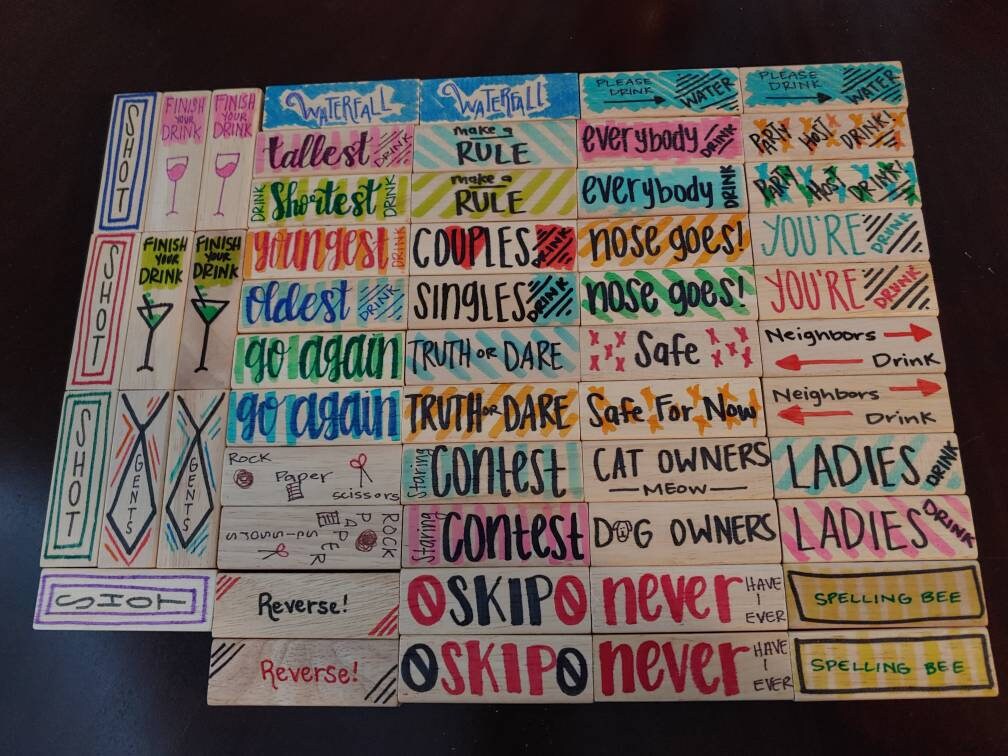 SHOT
FINISH
YOUR
DRINK
FINISH
YOUR
DRINK
WATERFALL
WATERFALL
PLEASE
DRINK
WATER
PLEASE
DRINK
WATER
tallest DRINK
make a
RULE
everybody DRINK
PARTY HOST DRINK!
DRINK Shortest DRINK
make a
RULE
everybody DRINK
PARTY HOST DRINK!
SHOT
FINISH
YOUR
DRINK
FINISH
YOUR
DRINK
youngest DRINK
COUPLES DRINK
nose goes!
YOU'RE DRUNK
oldest DRINK
SINGLES DRINK
nose goes!
YOU'RE DRUNK
go again
TRUTH OR DARE
Safe
Neighbors
Drink
go again
TRUTH OR DARE
Safe For Now
Neighbors
Drink
SHOT
GENTS
GENTS
ROCK
Paper
scissors
Staring Contest
CAT OWNERS
MEOW
LADIES DRINK
ROCK
PAPER
SCISSORS
Staring Contest
DOG OWNERS
LADIES DRINK
SHOT
Reverse!
SKIP
never HAVE
I
EVER
SPELLING BEE
Reverse!
SKIP
never HAVE
I
EVER
SPELLING BEE